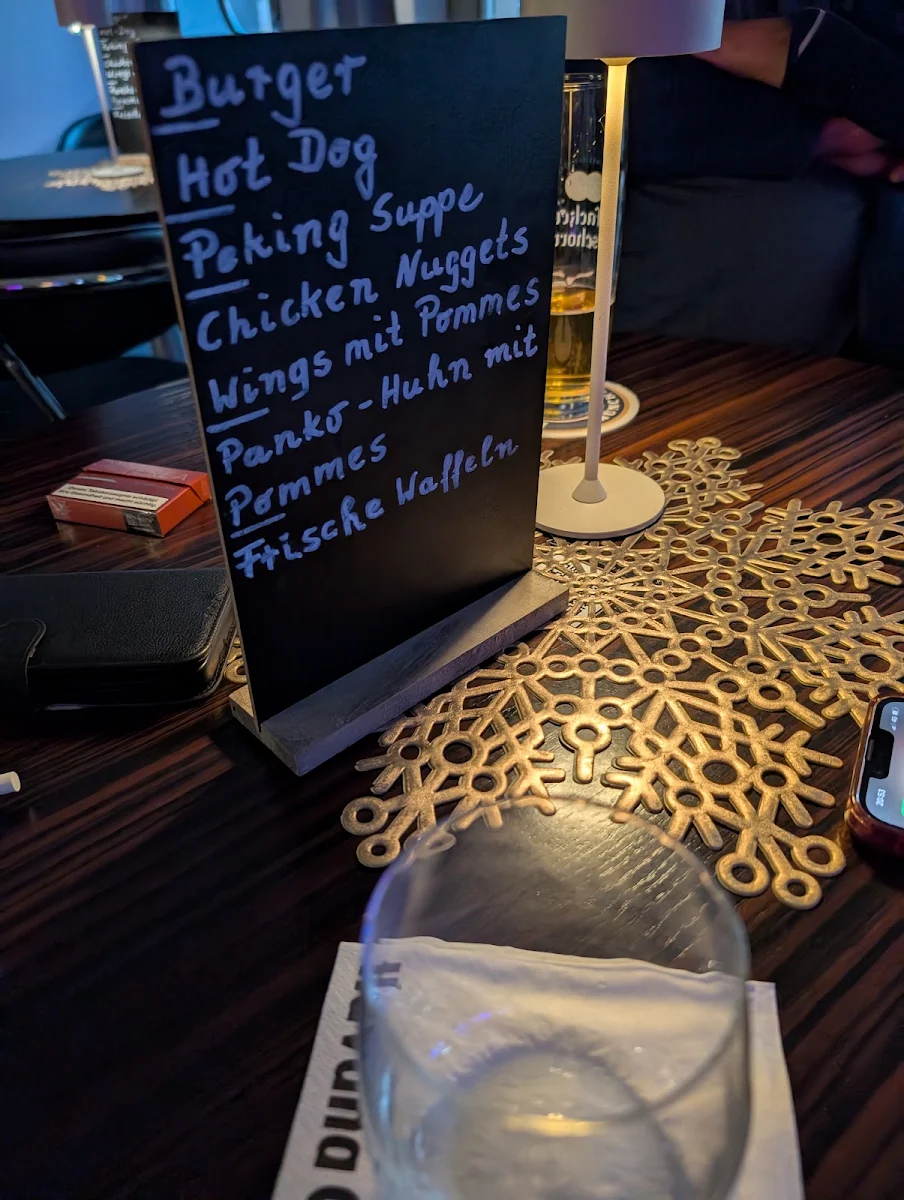 Burger
Hot Dog
Peking Suppe
Chicken Nuggets
Wings mit Pommes
Panko-Huhn mit
Pommes
Frische Waffeln
20:53